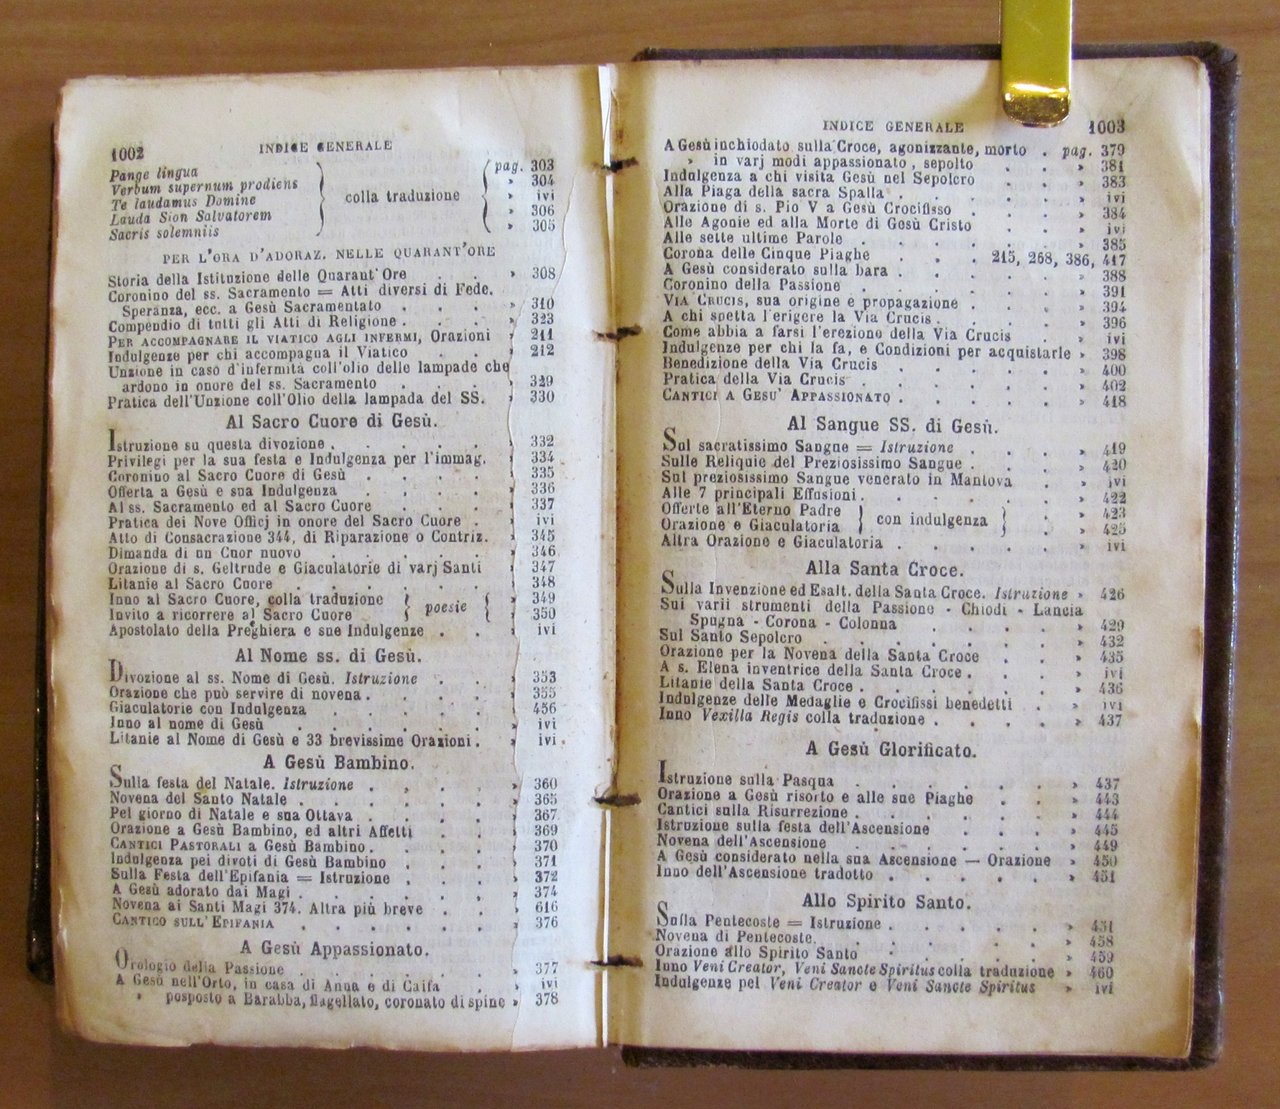 1002 INDICE GENERALE
Pange lingua pag. 303
Verbum supernum prodiens » 304
Te laudamus Domine colla traduzione » ivi
Lauda Sion Salvatorem » 306
Sacris solemniis » 305
PER L'ORA D'ADORAZ. NELLE QUARANT'ORE
Storia della Istituzione delle Quarant'Ore . . . » 308
Coronino del ss. Sacramento = Atti diversi di Fede.
Speranza, ecc. a Gesù Sacramentato . . . . » 310
Compendio di tutti gli Atti di Religione . . . . » 323
PER ACCOMPAGNARE IL VIATICO AGLI INFERMI, Orazioni » 211
Indulgenze per chi accompagna il Viatico . . . » 212
Unzione in caso d'infermità coll'olio delle lampade che
ardono in onore del ss. Sacramento . . . . » 329
Pratica dell'Unzione coll'Olio della lampada del SS. » 330
Al Sacro Cuore di Gesù.
Istruzione su questa divozione . . . . . . » 332
Privilegi per la sua festa e Indulgenza per l'immag. » 334
Coronino al Sacro Cuore di Gesù . . . . . » 335
Offerta a Gesù e sua Indulgenza . . . . . » 336
Al ss. Sacramento ed al Sacro Cuore . . . . » 337
Pratica dei Nove Officj in onore del Sacro Cuore . » ivi
Atto di Consacrazione 344, di Riparazione o Contriz. » 345
Dimanda di un Cuor nuovo . . . . . . » 346
Orazione di s. Geltrude e Giaculatorie di varj Santi » 347
Litanie al Sacro Cuore . . . . . . . » 348
Inno al Sacro Cuore, colla traduzione » 349
Invito a ricorrere al Sacro Cuore poesie » 350
Apostolato della Preghiera e sue Indulgenze . . . » ivi
Al Nome ss. di Gesù.
Divozione al ss. Nome di Gesù. Istruzione . . . » 353
Orazione che può servire di novena . . . . . » 355
Giaculatorie con Indulgenza . . . . . . » 456
Inno al nome di Gesù . . . . . . . » ivi
Litanie al Nome di Gesù e 33 brevissime Orazioni . » ivi
A Gesù Bambino.
Sulla festa del Natale. Istruzione . . . . . » 360
Novena del Santo Natale . . . . . . . » 365
Pel giorno di Natale e sua Ottava . . . . . » 367
Orazione a Gesù Bambino, ed altri Affetti . . . » 369
CANTICI PASTORALI a Gesù Bambino . . . . . » 370
Indulgenza pei divoti di Gesù Bambino . . . . » 371
Sulla Festa dell'Epifania = Istruzione . . . . » 372
A Gesù adorato dai Magi . . . . . . . » 374
Novena ai Santi Magi 374. Altra più breve . . . » 616
CANTICO SULL'EPIFANIA . . . . . . . » 376
A Gesù Appassionato.
Orologio della Passione . . . . . . . » 377
A Gesù nell'Orto, in casa di Anna e di Caifa . . » ivi
» posposto a Barabba, flagellato, coronato di spine » 378
INDICE GENERALE 1003
A Gesù inchiodato sulla Croce, agonizzante, morto . pag. 379
» in varj modi appassionato, sepolto . . . » 381
Indulgenza a chi visita Gesù nel Sepolcro . . . » 383
Alla Piaga della sacra Spalla . . . . . . » ivi
Orazione di s. Pio V a Gesù Crocifisso . . . . » 384
Alle Agonie ed alla Morte di Gesù Cristo . . . » ivi
Alle sette ultime Parole . . . . . . . » 385
Corona delle Cinque Piaghe . . . 215, 268, 386, 417
A Gesù considerato sulla bara . . . . . . » 388
Coronino della Passione . . . . . . . » 391
VIA CRUCIS, sua origine e propagazione . . . . » 394
A chi spetta l'erigere la Via Crucis . . . . . » 396
Come abbia a farsi l'erezione della Via Crucis . . » ivi
Indulgenze per chi la fa, e Condizioni per acquistarle » 398
Benedizione della Via Crucis . . . . . . » 400
Pratica della Via Crucis . . . . . . . » 402
CANTICI A GESU' APPASSIONATO . . . . . . » 418
Al Sangue SS. di Gesù.
Sul sacratissimo Sangue = Istruzione . . . . » 419
Sulle Reliquie del Preziosissimo Sangue . . . . » 420
Sul preziosissimo Sangue venerato in Mantova . . » ivi
Alle 7 principali Effusioni . . . . . . . » 422
Offerte all'Eterno Padre » 423
Orazione e Giaculatoria con indulgenza » 425
Altra Orazione e Giaculatoria . . . . . . » ivi
Alla Santa Croce.
Sulla Invenzione ed Esalt. della Santa Croce. Istruzione » 426
Sui varii strumenti della Passione - Chiodi - Lancia
Spugna - Corona - Colonna . . . . . » 429
Sul Santo Sepolcro . . . . . . . . » 432
Orazione per la Novena della Santa Croce . . . » 435
A s. Elena inventrice della Santa Croce . . . . » ivi
Litanie della Santa Croce . . . . . . . » 436
Indulgenze delle Medaglie e Crocifissi benedetti . . » ivi
Inno Vexilla Regis colla traduzione . . . . . » 437
A Gesù Glorificato.
Istruzione sulla Pasqua . . . . . . . » 437
Orazione a Gesù risorto e alle sue Piaghe . . . » 443
Cantici sulla Risurrezione . . . . . . . » 444
Istruzione sulla festa dell'Ascensione . . . . » 445
Novena dell'Ascensione . . . . . . . » 449
A Gesù considerato nella sua Ascensione — Orazione » 450
Inno dell'Ascensione tradotto . . . . . . » 451
Allo Spirito Santo.
Sulla Pentecoste = Istruzione . . . . . . » 451
Novena di Pentecoste. . . . . . . . » 458
Orazione allo Spirito Santo . . . . . . » 459
Inno Veni Creator, Veni Sancte Spiritus colla traduzione » 460
Indulgenze pel Veni Creator e Veni Sancte Spiritus » ivi